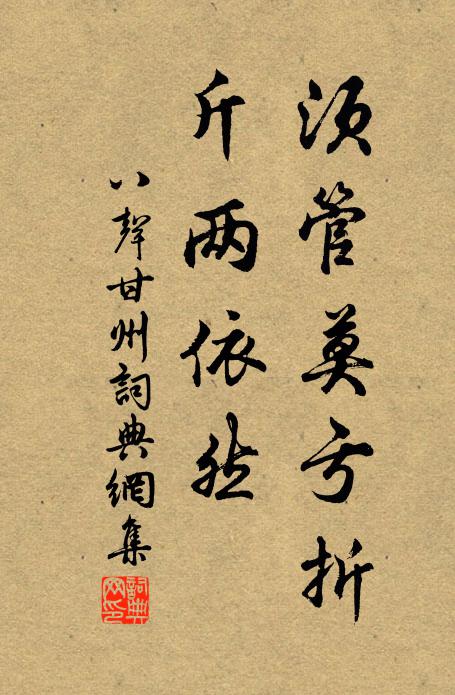 须管莫亏折
斤两依然
八聲甘州詞典網集
詞典网印